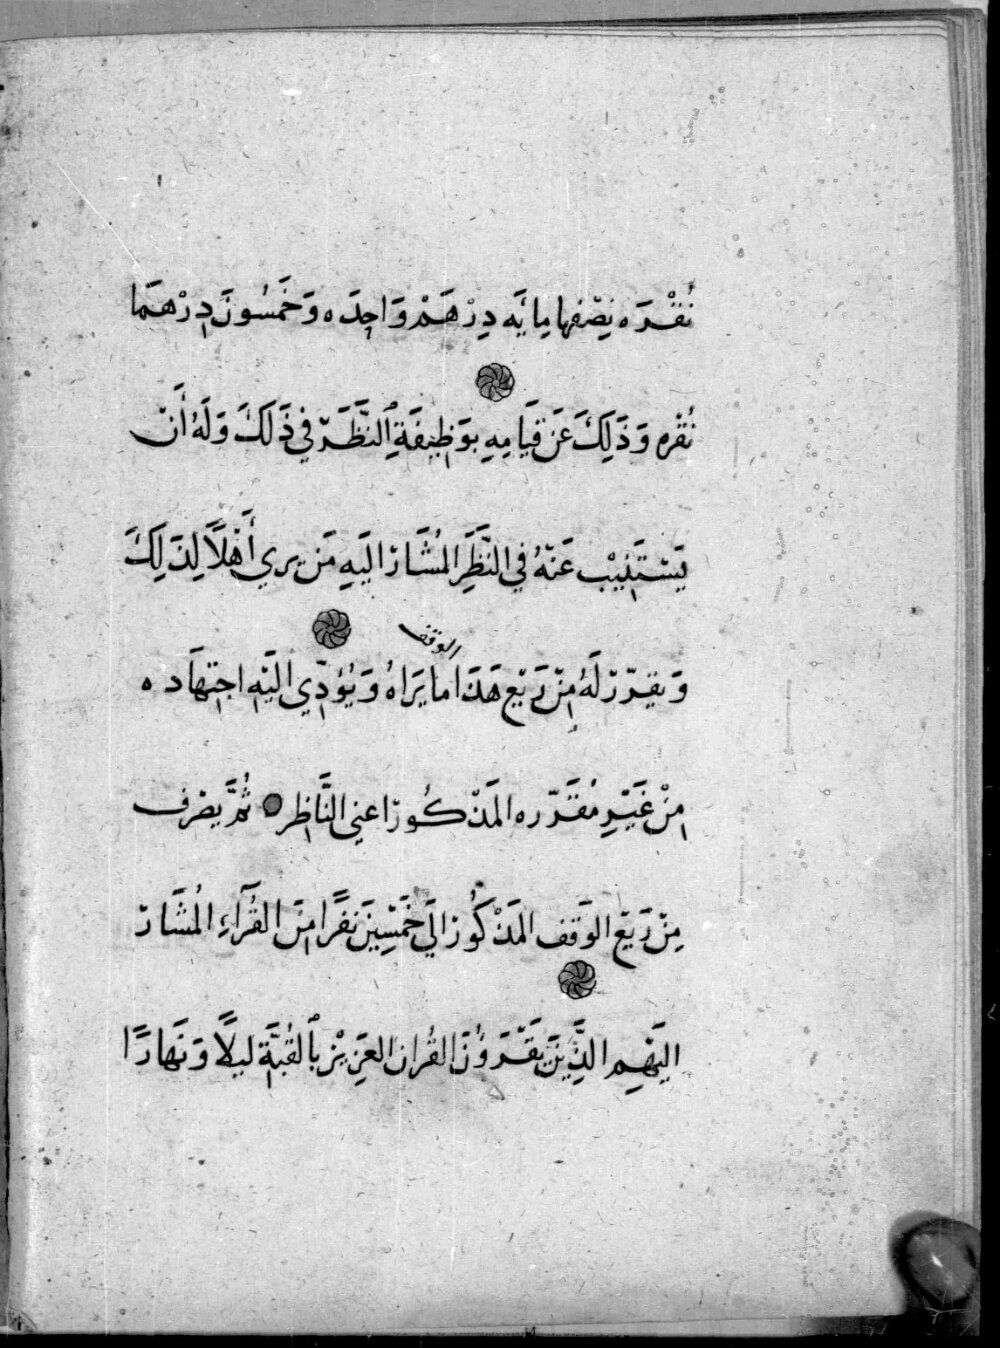 نُقْرَه نِصْفها مِايَه دِرْهَمْ وَاحِدَه وَخَمسُونَ دِرْهَمَا
نُقْره وَذَلِكَ عَن قيَامِهِ بوَظِيفَةِ ٱلنَّظَرَ في ذَلكَ وَلَهُ أَنْ
يَسْتَنِيْب عَنْهُ في النَّظَرِ المُشَارْ اليَهِ مَن يري أَهْلًا لِذَلِكَ
وَيقرّرْ لَهُ مِنْ رَيْع هَذَا الوقف ما يَرَاهُ وَيُؤدّي اليَهِ اجتهَاده
مِنْ غَيْرِ مُقَرّره المَذْكُورْ اعني النَّاظِر ثُمَّ يصْرف
مِنْ رَيْع الوَقف المَذْكُورْ الَي خَمْسِينَ نفَرًا مِنَ القُرّآءِ المُشَارْ
اليَهِم الذِّينَ يَقْرَؤُنَ القُران العَزِيْز بٱلقُبَّة ليلًا وَنَهارًا